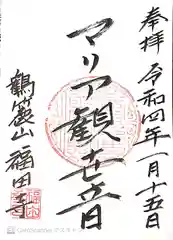 奉拝 令和四年一月十五日
マリア観音
鶴嶺山 福田寺